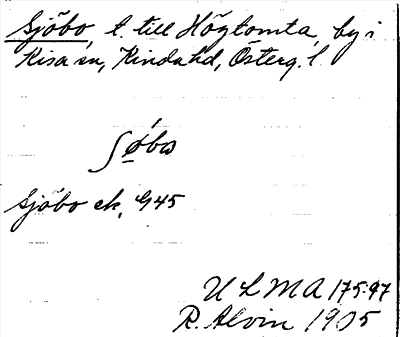 Sjöbo, t. till Högtomta, by i
Kisa sn, Kinda hd, Österg. l.
ʃø̀bω
Sjöbo ek, G45
ULMA 175:97
R. Alvin 1905